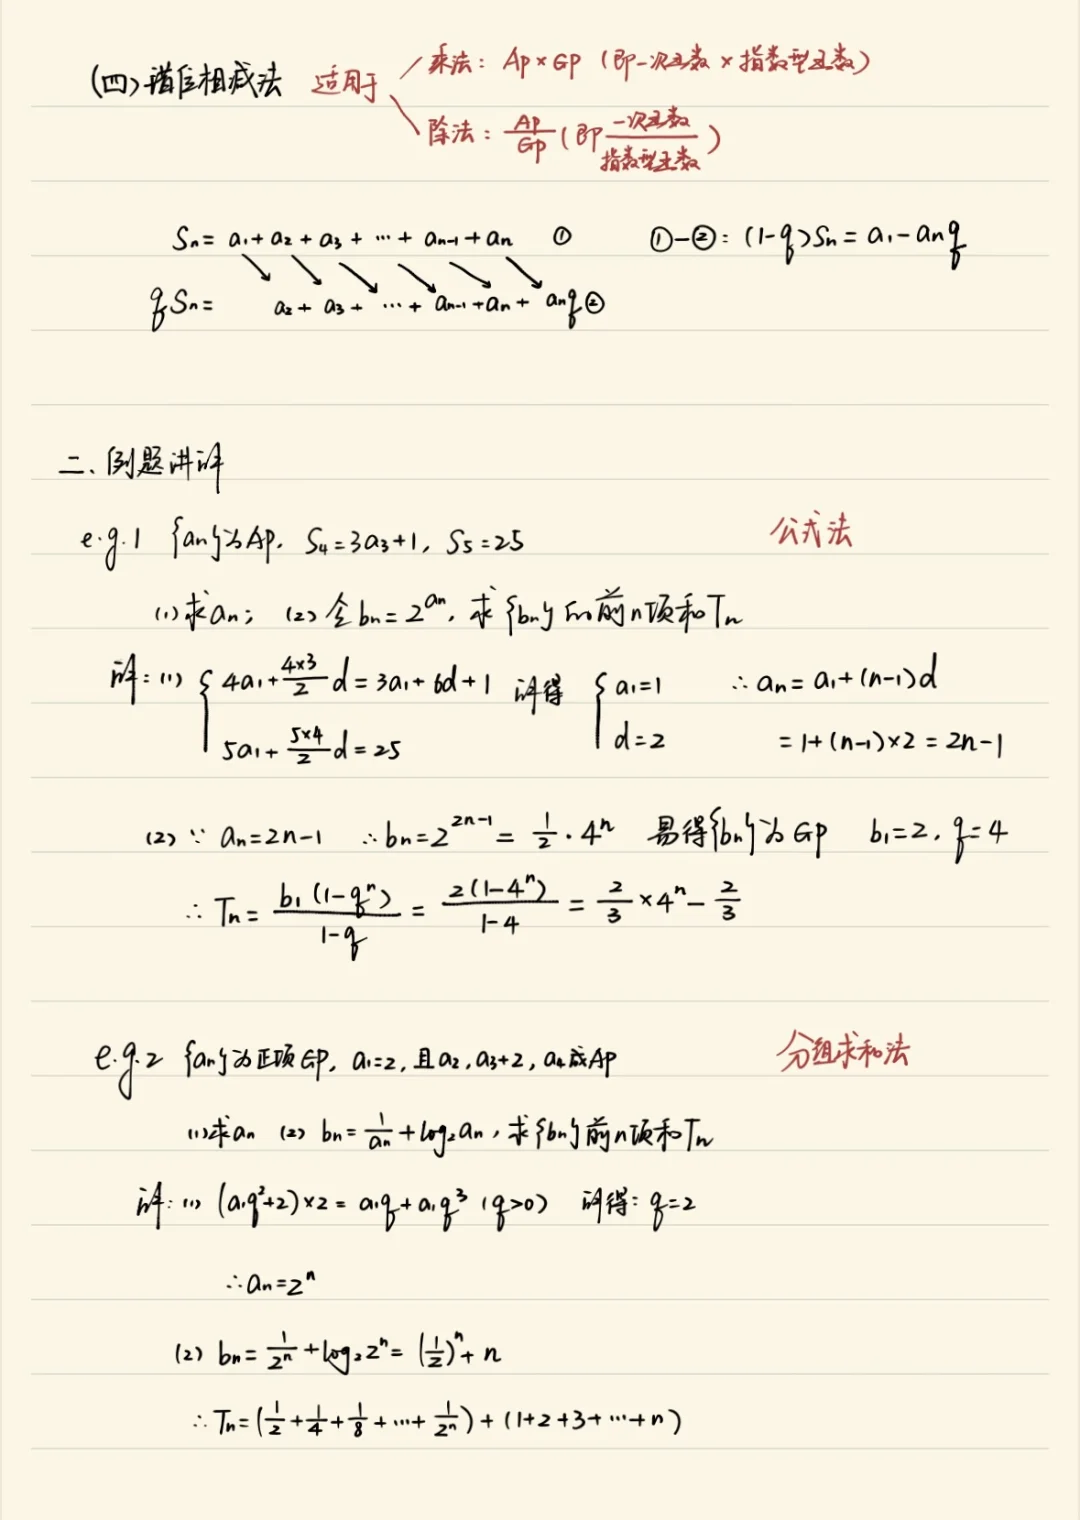 (四)错位相减法 适用于
乘法：Ap×Gp（即一次函数×指数型函数）
除法：Ap/Gp（即 一次函数/指数型函数）
Sn = a₁+a₂+a₃+⋯+an-1+an ① ①-②：(1-q)Sn = a₁-anq
qSn = a₂+a₃+⋯+an-1+an+anq ②
二、例题讲解
e.g.1 {an}为Ap, S₄=3a₃+1, S₅=25 公式法
(1)求an; (2)令bn=2^an, 求{bn}的前n项和Tn
解：(1) { 4a₁+(4×3)/2 d=3a₁+6d+1 解得 { a₁=1 ∴an=a₁+(n-1)d
5a₁+(5×4)/2 d=25 d=2 =1+(n-1)×2=2n-1
(2) ∵ an=2n-1 ∴bn=2^(2n-1)=1/2·4ⁿ 易得{bn}为Gp b₁=2, q=4
∴Tn=b₁(1-qⁿ)/(1-q)=2(1-4ⁿ)/(1-4)=2/3×4ⁿ-2/3
e.g.2 {an}为正项Gp, a₁=2, 且a₂, a₃+2, a₄成Ap 分组求和法
(1)求an (2) bn=1/an+log₂an, 求{bn}前n项和Tn
解：(1) (a₁q²+2)×2=a₁q+a₁q³ (q>0) 解得：q=2
∴an=2ⁿ
(2) bn=1/2ⁿ+log₂2ⁿ=(1/2)ⁿ+n
∴Tn=(1/2+1/4+1/8+⋯+1/2ⁿ)+(1+2+3+⋯+n)